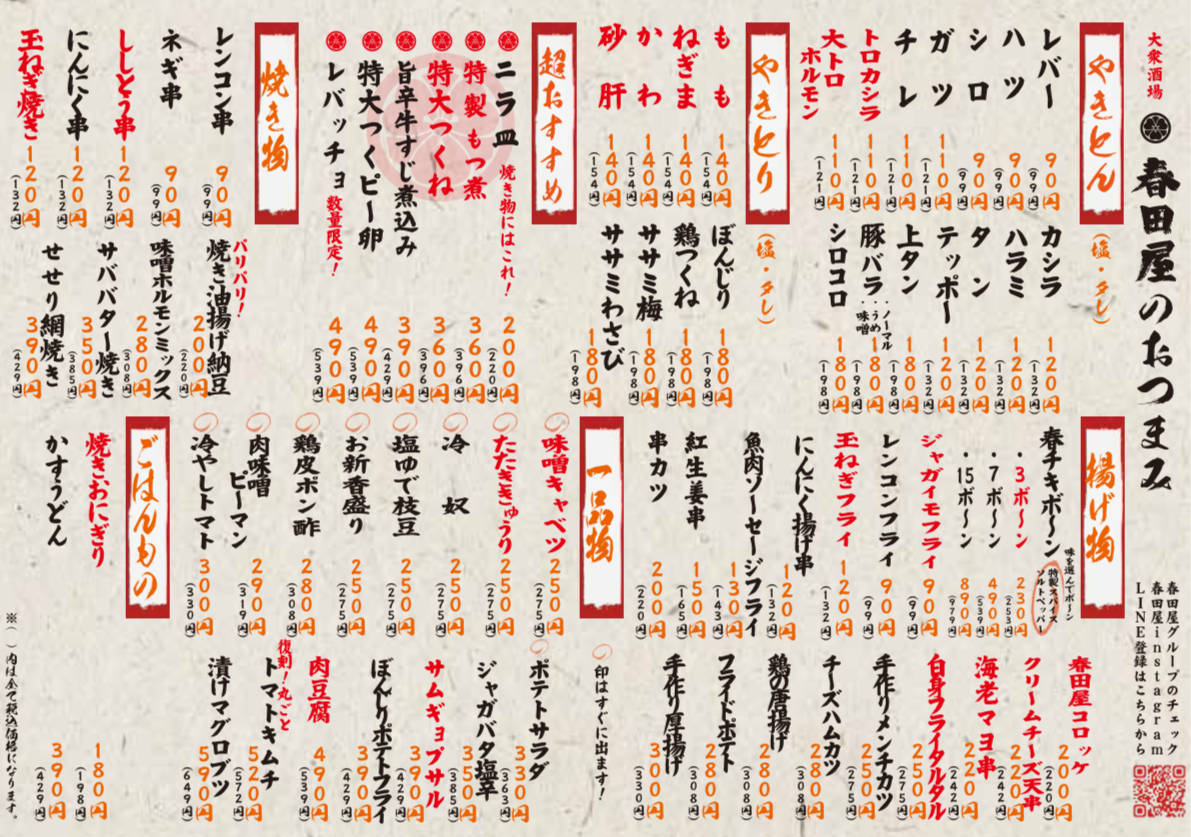 大衆酒場
春田屋のおつまみ
春田屋グループのチェック
春田屋instagram
LINE登録はこちらから
やきとん
(塩・タレ)
レバー 90円 (99円)
ハツ 90円 (99円)
シロ 90円 (99円)
ガツ 110円 (121円)
チレ 110円 (121円)
トロカシラ 110円 (121円)
大トロホルモン 110円 (121円)
カシラ 120円 (132円)
ハラミ 120円 (132円)
タン 120円 (132円)
テッポー 120円 (132円)
上タン 180円 (198円)
豚バラ ・ノーマル ・うめ ・味噌 180円 (198円)
シロコロ 180円 (198円)
やきとり
(塩・タレ)
もも 140円 (154円)
ねぎま 140円 (154円)
かわ 140円 (154円)
砂肝 140円 (154円)
ぼんじり 180円 (198円)
鶏つくね 180円 (198円)
ササミ梅 180円 (198円)
ササミわさび 180円 (198円)
超おすすめ
ニラ皿 焼き物にはこれ! 200円 (220円)
特製もつ煮 360円 (396円)
特大つくね 360円 (396円)
旨辛牛すじ煮込み 390円 (429円)
特大つくピー卵 490円 (539円)
レバッチョ 数量限定! 490円 (539円)
焼き物
レンコン串 90円 (99円)
ネギ串 90円 (99円)
ししとう串 120円 (132円)
にんにく串 120円 (132円)
玉ねぎ焼き 120円 (132円)
パリパリ!
焼き油揚げ納豆 200円 (220円)
味噌ホルモンミックス 280円 (308円)
サババター焼き 350円 (385円)
せせり網焼き 390円 (429円)
揚げ物
春チキボ〜ン 味を選んでボ〜ン 特製スパイス ソルトペッパー
・3ボ〜ン 230円 (253円)
・7ボ〜ン 490円 (539円)
・15ボ〜ン 890円 (979円)
ジャガイモフライ 90円 (99円)
レンコンフライ 90円 (99円)
玉ねぎフライ 120円 (132円)
にんにく揚げ串 120円 (132円)
魚肉ソーセージフライ 130円 (143円)
紅生姜串 150円 (165円)
串カツ 200円 (220円)
春田屋コロッケ 200円 (220円)
クリームチーズ天串 220円 (242円)
海老マヨ串 220円 (242円)
白身フライタルタル 250円 (275円)
手作りメンチカツ 250円 (275円)
チーズハムカツ 280円 (308円)
鶏の唐揚げ 280円 (308円)
フライドポテト 280円 (308円)
手作り厚揚げ 300円 (330円)
一品物
印はすぐに出ます!
味噌キャベツ 250円 (275円)
たたききゅうり 250円 (275円)
冷奴 250円 (275円)
塩ゆで枝豆 250円 (275円)
お新香盛り 250円 (275円)
鶏皮ポン酢 280円 (308円)
肉味噌ピーマン 290円 (319円)
冷やしトマト 300円 (330円)
ポテトサラダ 330円 (363円)
ジャガバタ塩辛 350円 (385円)
サムギョプサル 390円 (429円)
ぼんじりポテトフライ 390円 (429円)
肉豆腐 490円 (539円)
復刻!丸ごと
トマトキムチ 520円 (572円)
漬けマグロブツ 590円 (649円)
ごはんもの
焼きおにぎり 180円 (198円)
かすうどん 390円 (429円)
※( )内は全て税込価格になります。